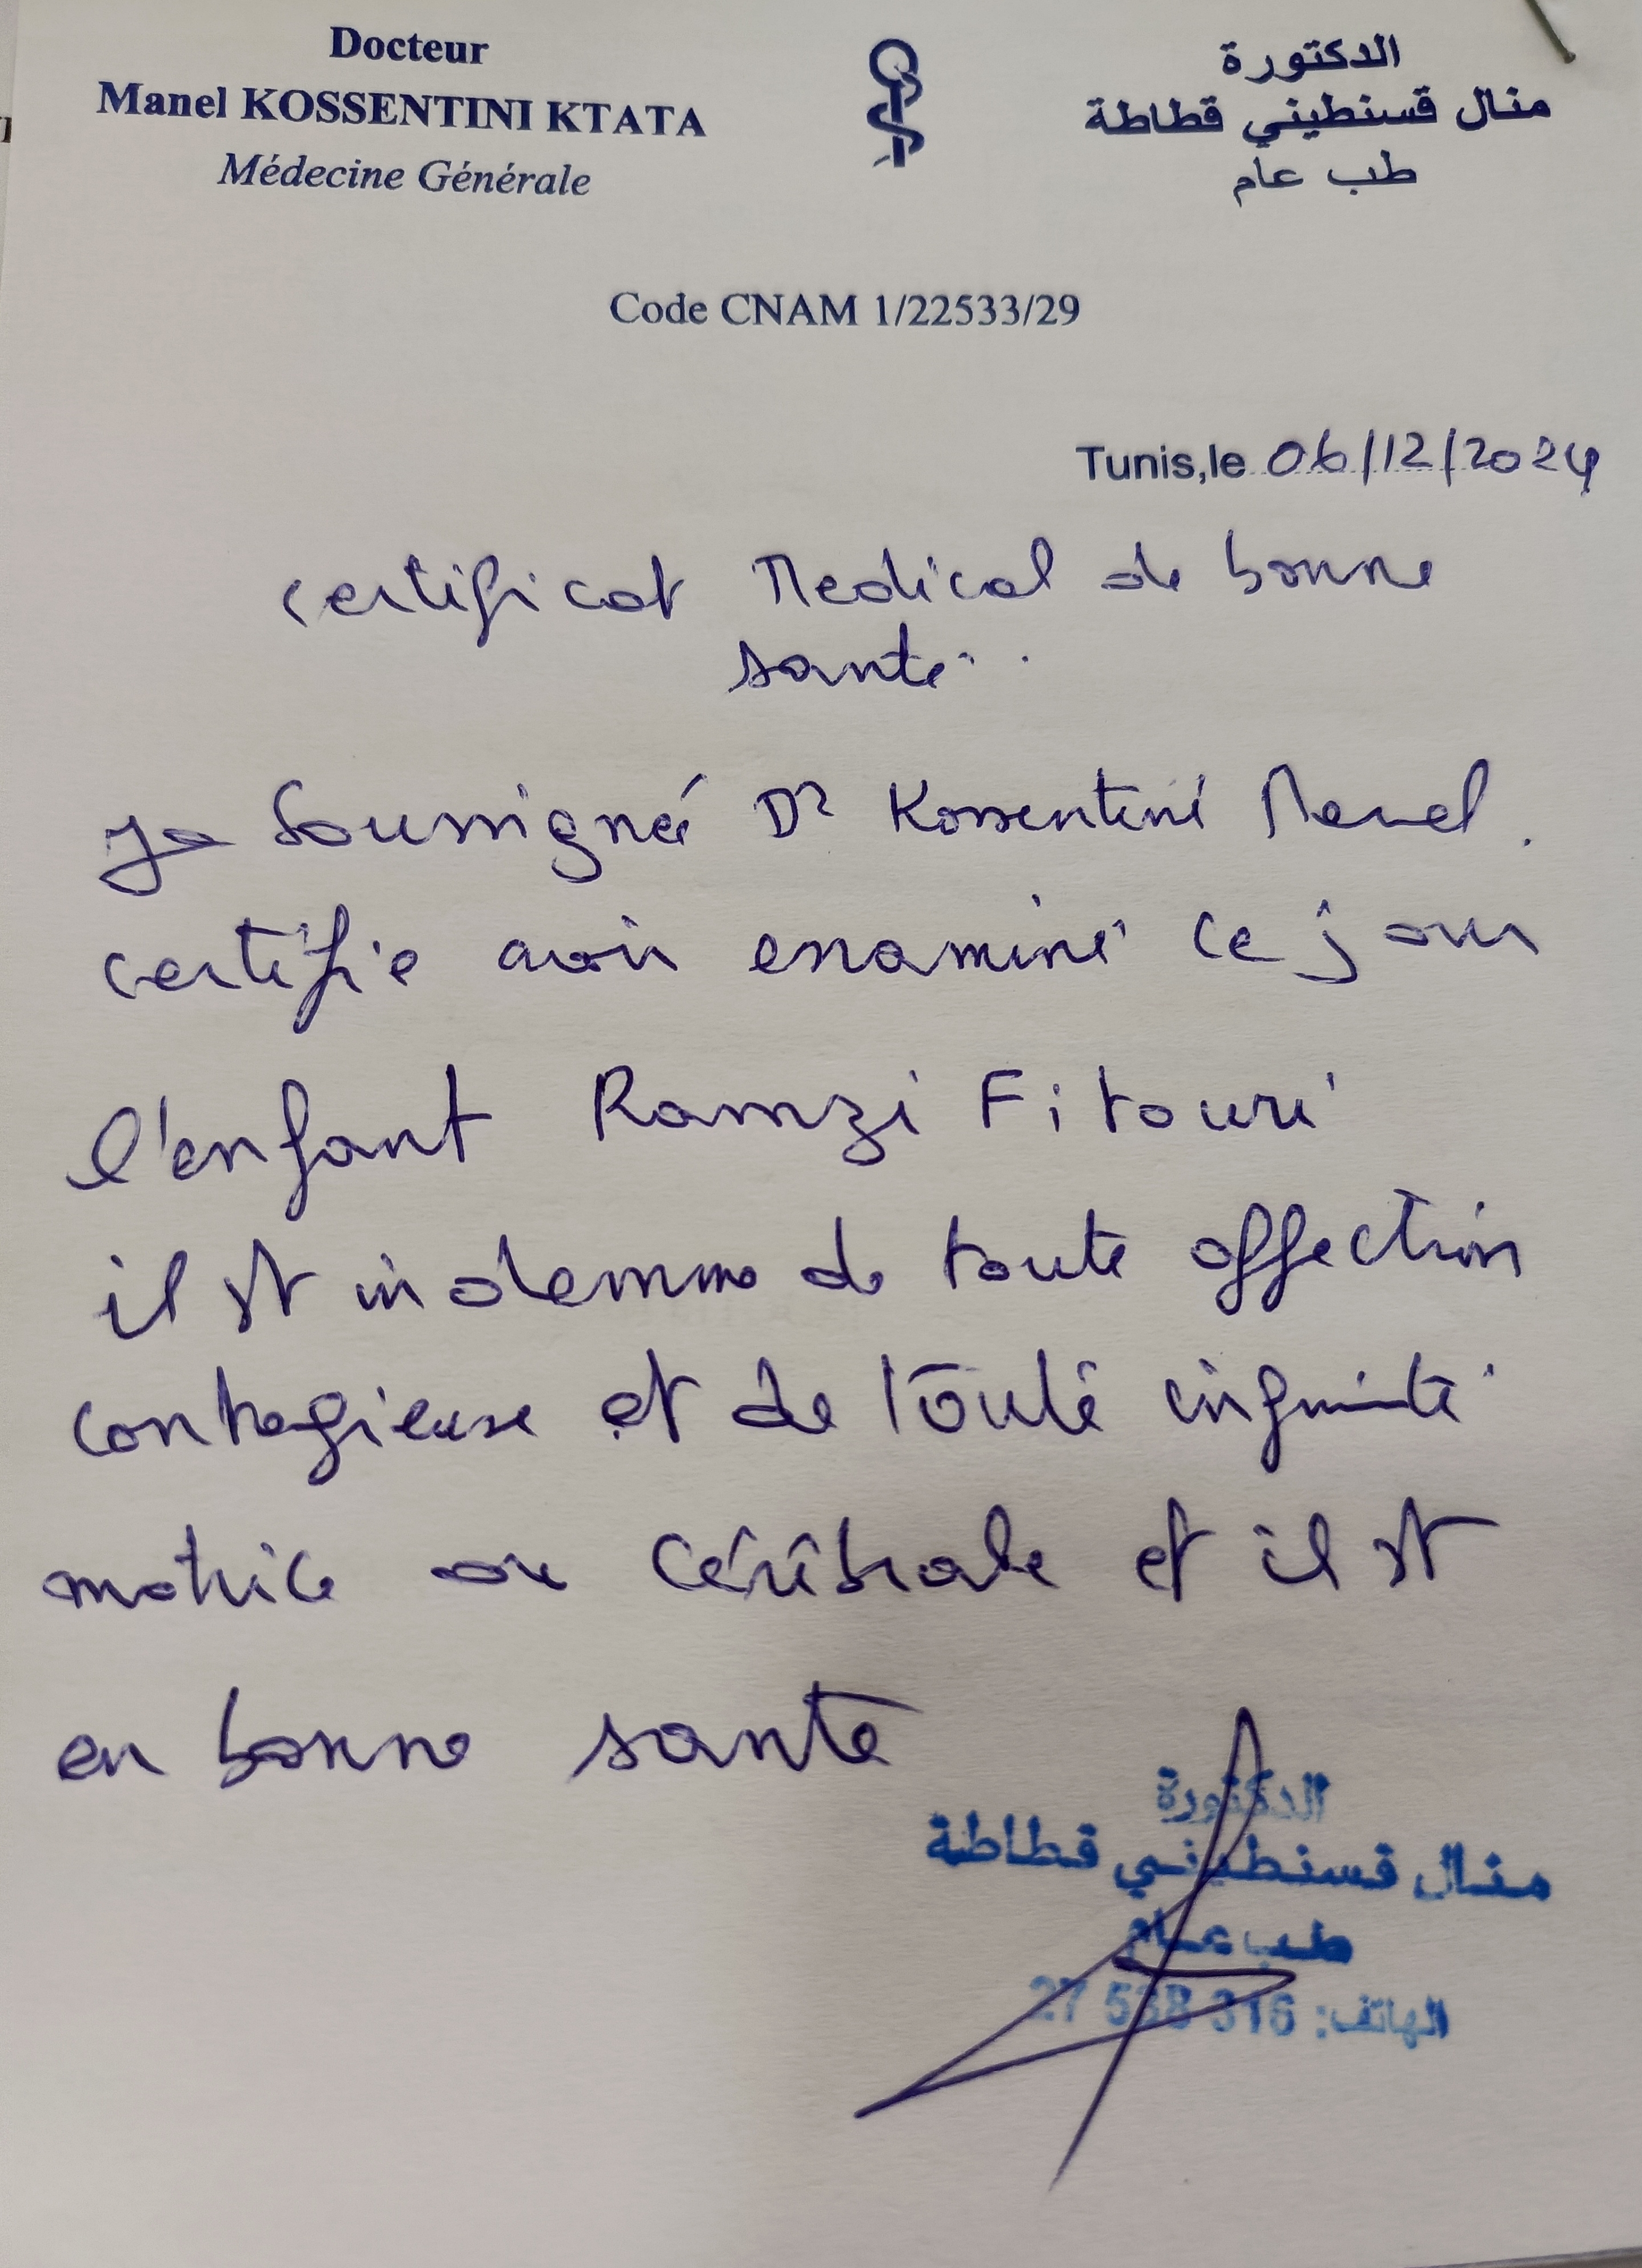 Docteur
Manel KOSSENTINI KTATA
Médecine Générale
الدكتورة
منال قسنطيني قطاطة
طب عام
Code CNAM 1/22533/29
Tunis,le 06/12/2024
certificat Medical de bonne
santé.
Je soussigné Dr Kossentini Manel.
certifie avoir examiné ce jour
l'enfant Ramzi Fitouri
il est indemne de toute affection
contagieuse et de toute infirmité
motrice ou cérébrale et il est
en bonne santé
الدكتورة
منال قسنطيني قطاطة
طب عام
الهاتف: 27 538 316